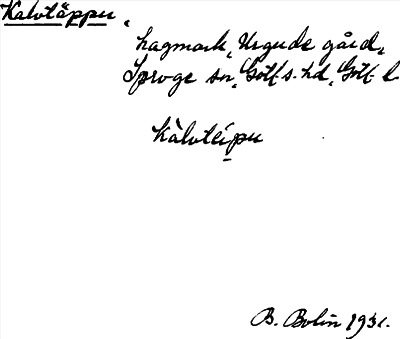 Kalvtäppu,
hagmark, Urgude gård,
Sproge sn, Gotl. s. hd, Gotl. l.
Kàlvtäipu
B. Bolin 1931.